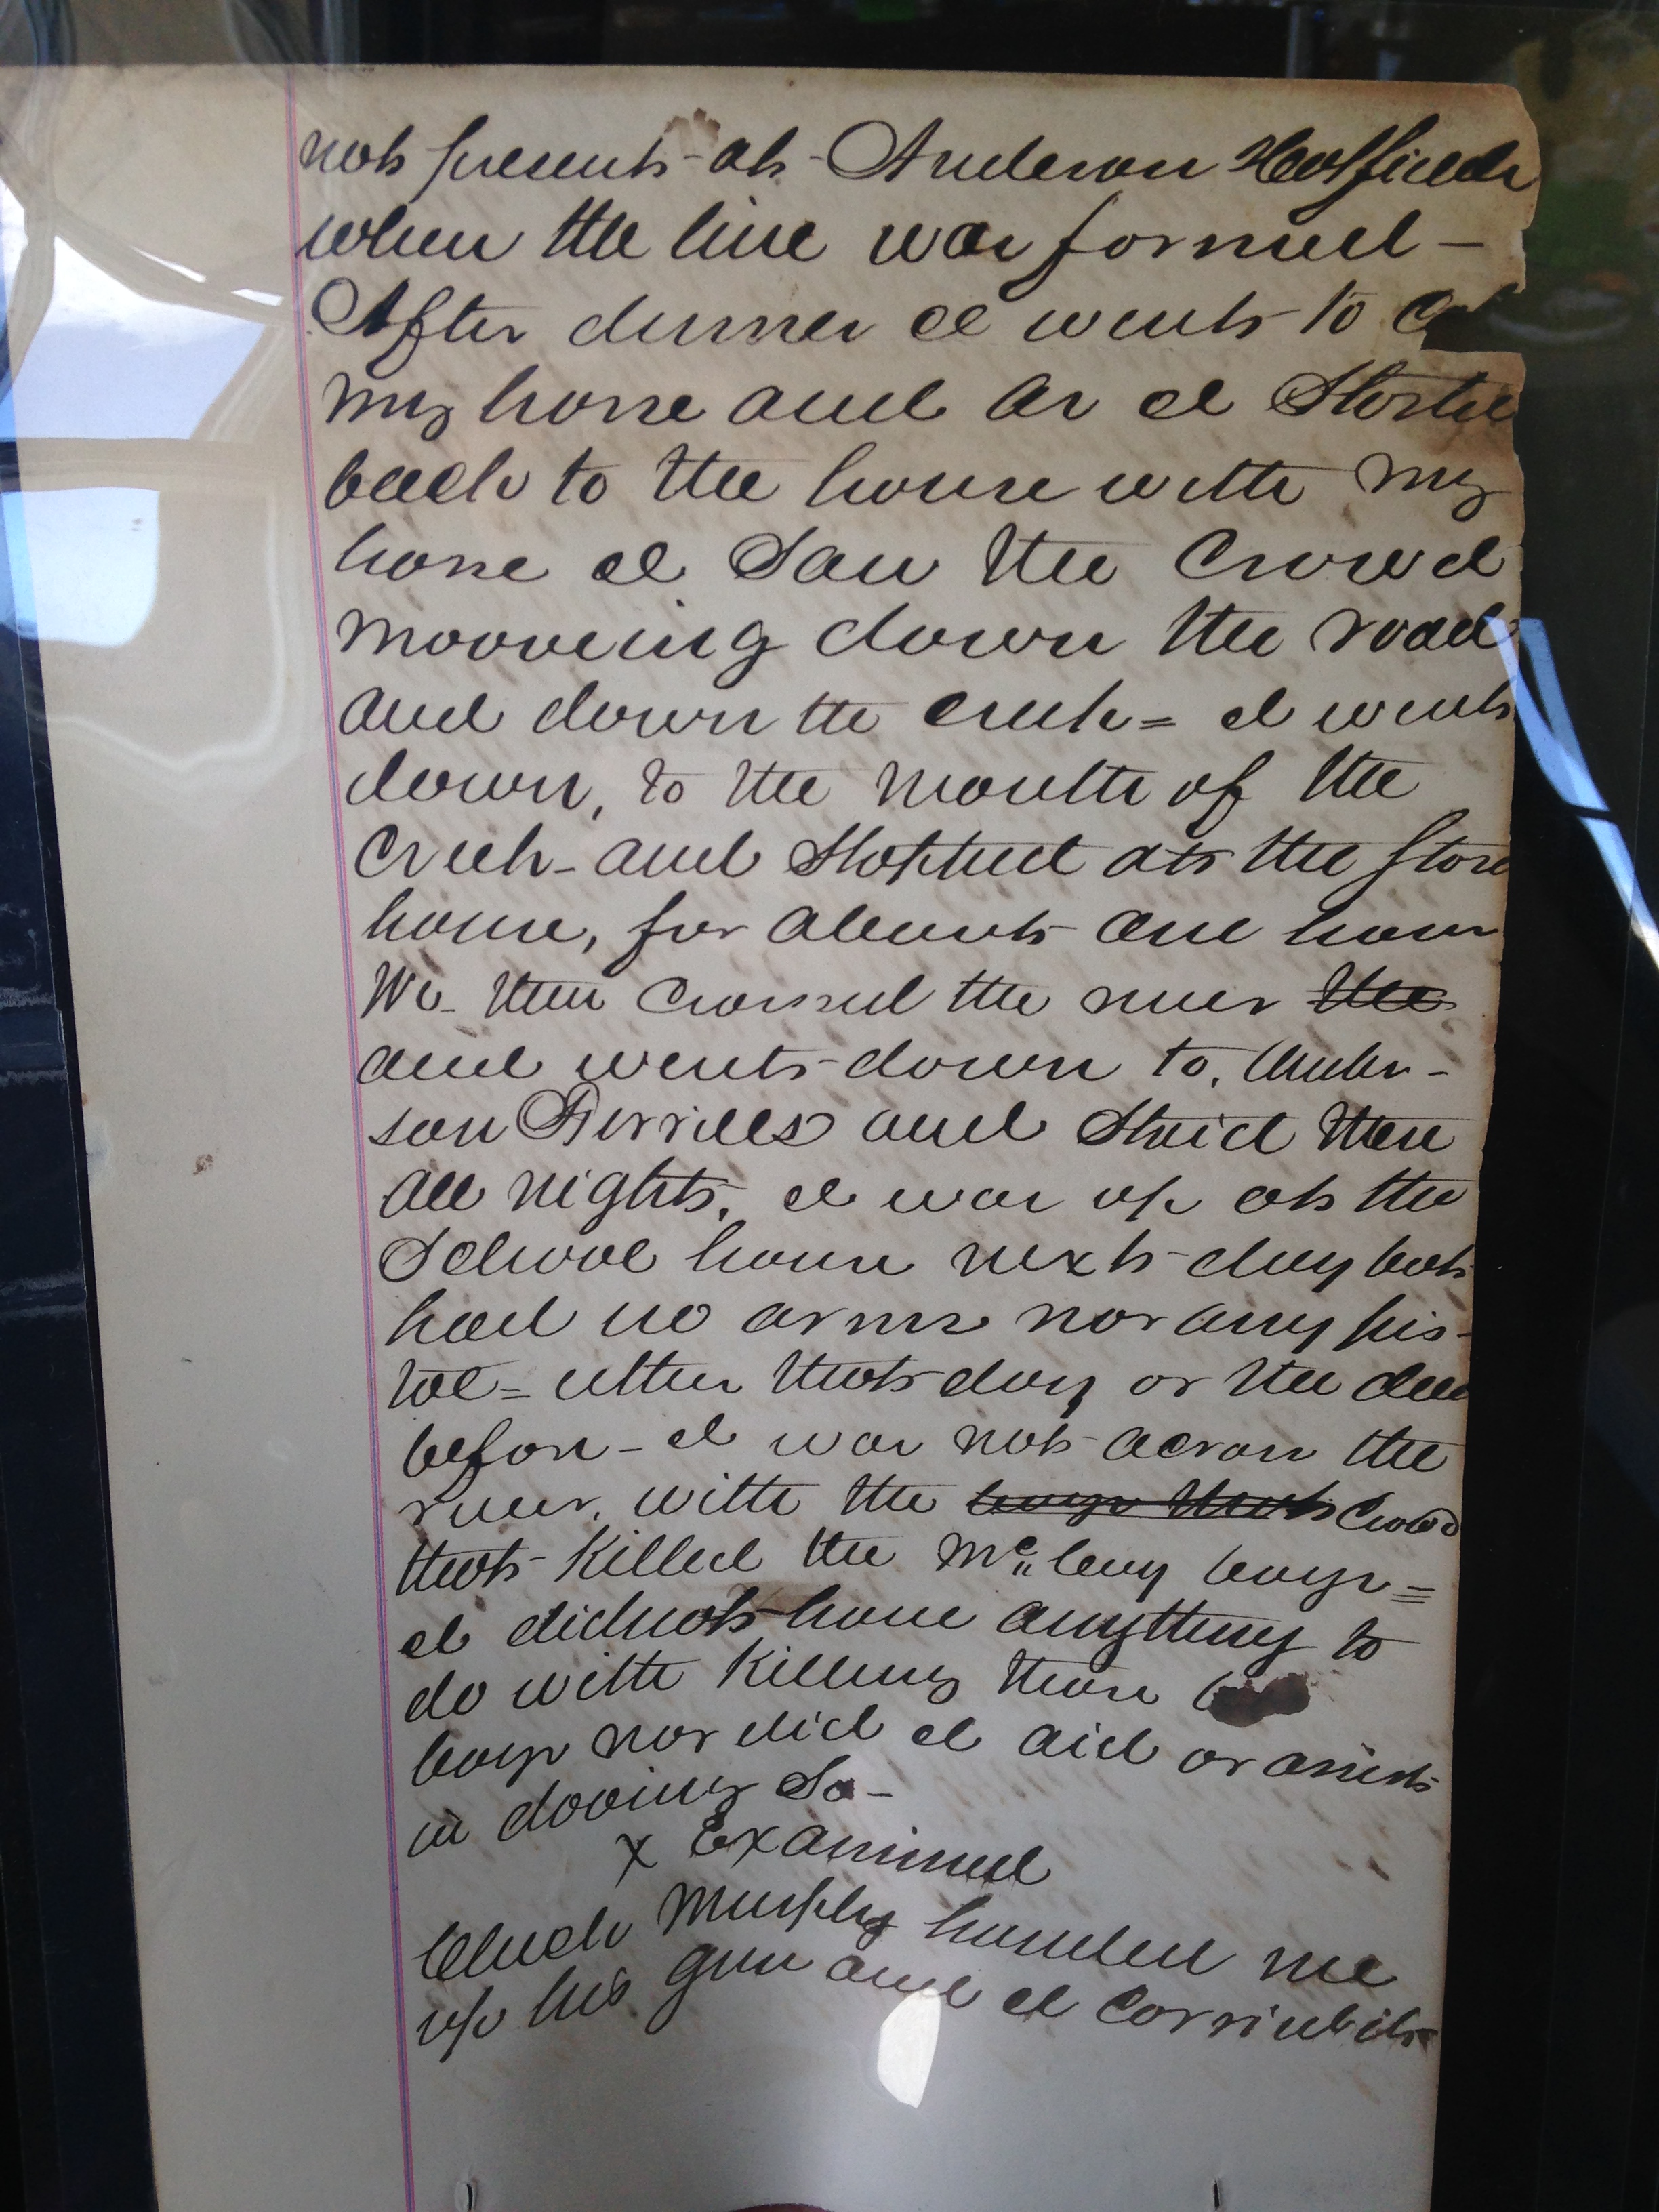 not present at Anderson Hatfields
when the line was formed —
After dinner I went to
my horse and as I Started
back to the house with my
horse I Saw the Crowd
mooveing down the road
and down the creek = I went
down, to the mouth of the
Creek - and Stopped at the Store
house, for about one hour
We then Crossed the river the
and went down to, Ander-
son Ferrells and Staid there
all night, I was up at the
School house next day but
had no arms nor any pis-
tol = either that day or the day
before - I was not across the
river, with the boys that Crowd
that Killed the McCoy boys =
I did not have anything to
do with Killing those
boys nor did I aid or assist
in dooing So —
x Examined
Chuck Murphy handed me
up his gun and I Corried it